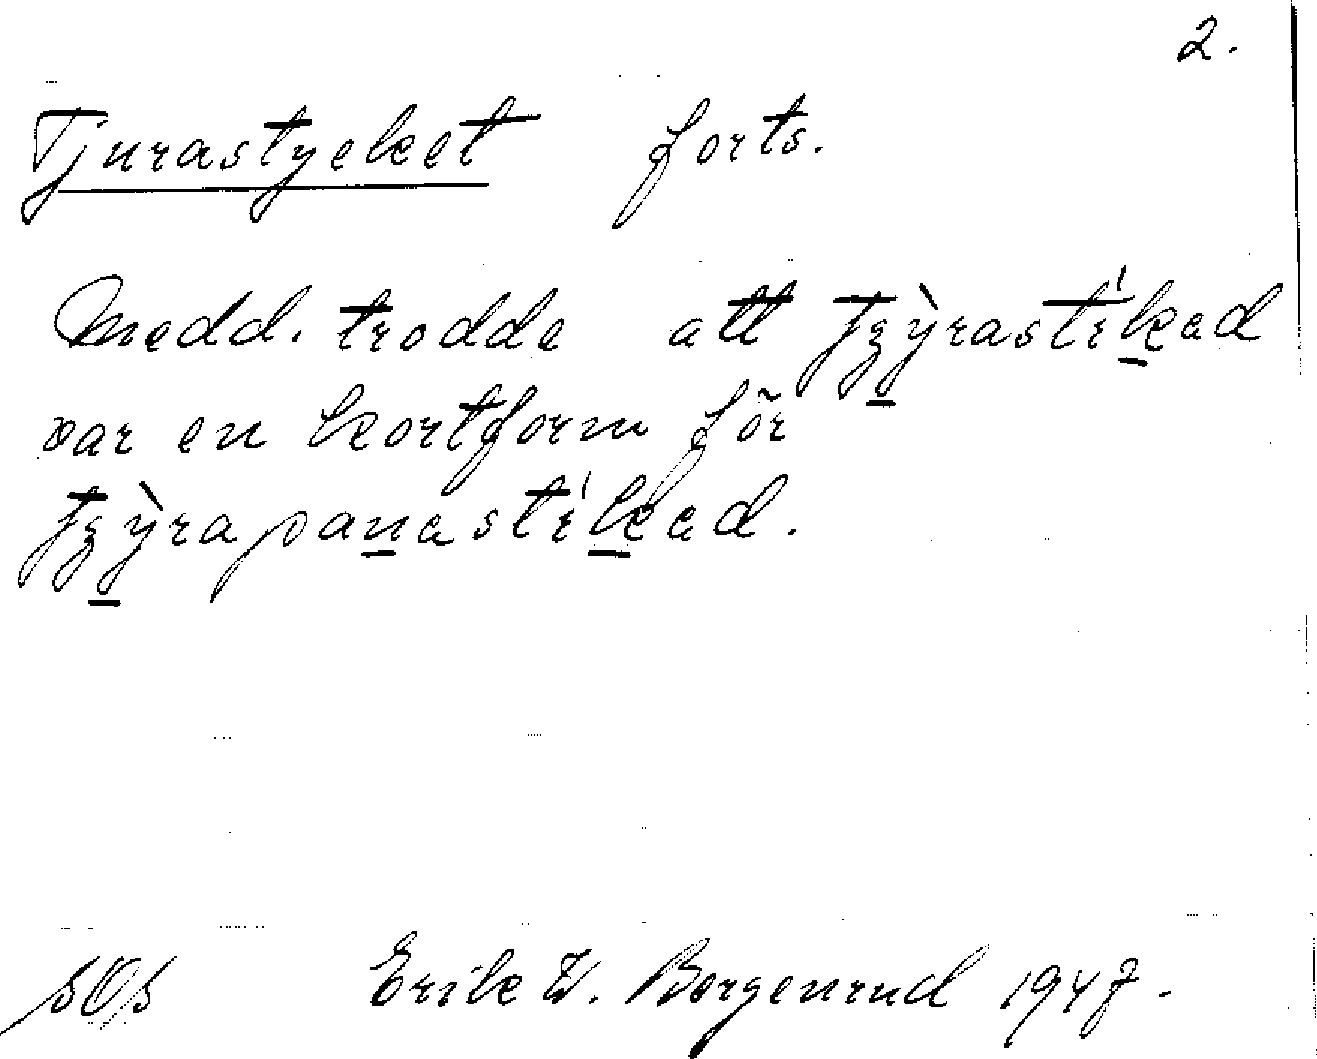 2.
Tjurastycket forts.
Medd. trodde att tʒỳrastíkad
var en kortform för
tʒỳrapanastíkad.
Erik W. Borgenrud 1947.